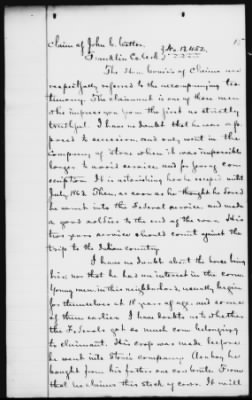 Claim of John C. Cutter.
Franklin Co. Ark. } No. 12,452.
The Hon. Comrs of Claims are
respectfully referred to the accompanying tes-
timony. The claimant is one of those men
who impress you from the first as strictly
truthful. I have no doubt that he was op-
posed to secession, and only went in this
company of Stone when it was impossible
longer to avoid service and for fear of con-
scription. It is astonishing how he escaped until
July 1862. Then, as soon as he thought he could
he went into the Federal service, and made
a good soldier to the end of the war. His
two years service should count against the
trip to the Indian country.
I have no doubt about the horse being
his nor that he had an interest in the corn.
Young men in this neighborhood, usually begin
for themselves at 18 years of age and some of
them earlier. I have doubts as to whether
the Federals got so much corn belonging
to claimant. His crop was made before
he went into Stone's company. Also he
bought from his father one cow
that he claims this stack of corn. It will